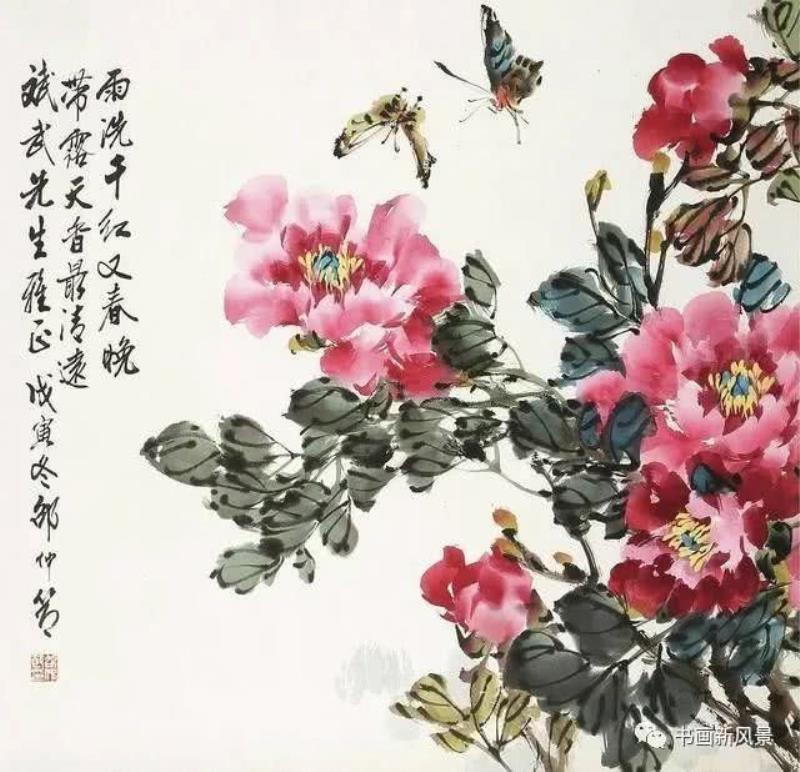 雨洗千红又春晚
带露天香最清远
斌武先生雅正 戊寅冬邵仲节
书画新风景